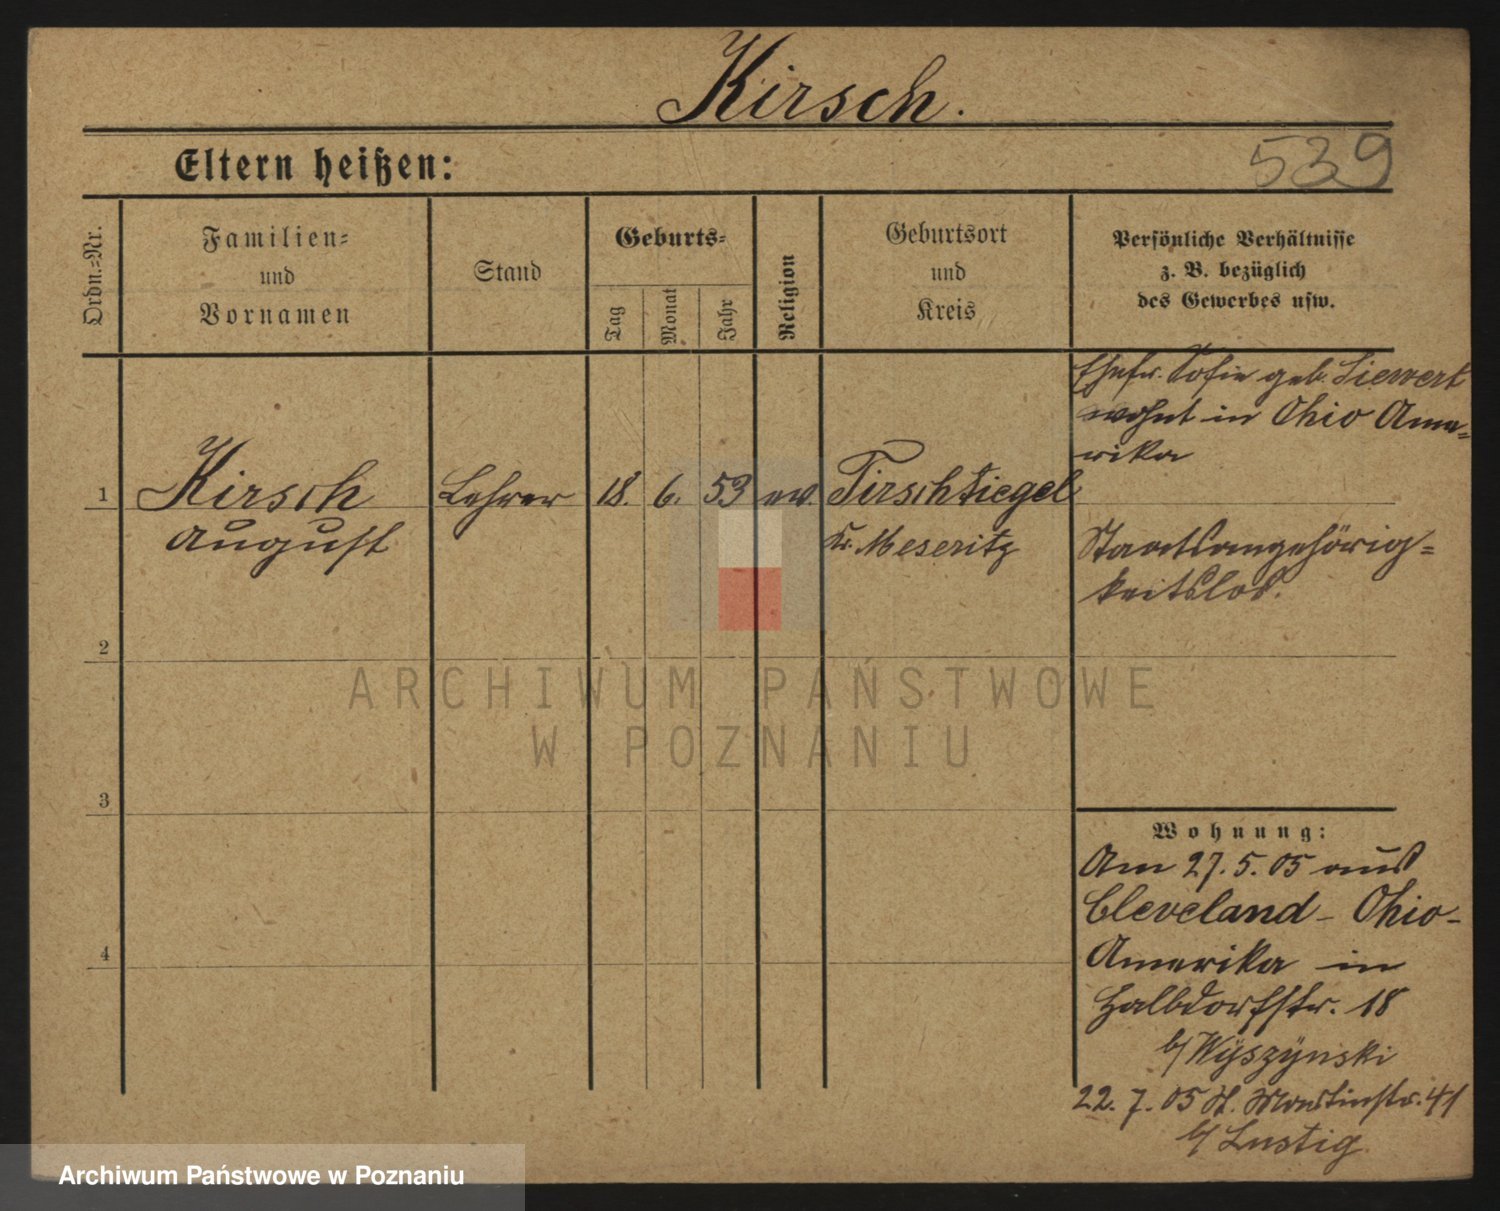 Kirsch.
539
Eltern heißen:
Ordn.-Nr.
Familien-
und
Vornamen
Stand
Geburts-
Tag
Monat
Jahr
Religion
Geburtsort
und
Kreis
Persönliche Verhältnisse
z. B. bezüglich
des Gewerbes usw.
Ehefr. Sofie geb. Siewert
wohnt in Ohio Ame-
rika
1 Kirsch Lehrer 18. 6. 53 ev. Tirschtiegel
August Kr. Meseritz
Staatsangehörig-
keitslos.
2
3
4
Wohnung:
Am 27. 5. 05 aus
Cleveland - Ohio -
Amerika in
Halbdorfstr. 18
b/ Wyszynski
22. 7. 05 St. Martinstr. 41
b/ Lustig
ARCHIWUM PAŃSTWOWE
W POZNANIU
Archiwum Państwowe w Poznaniu